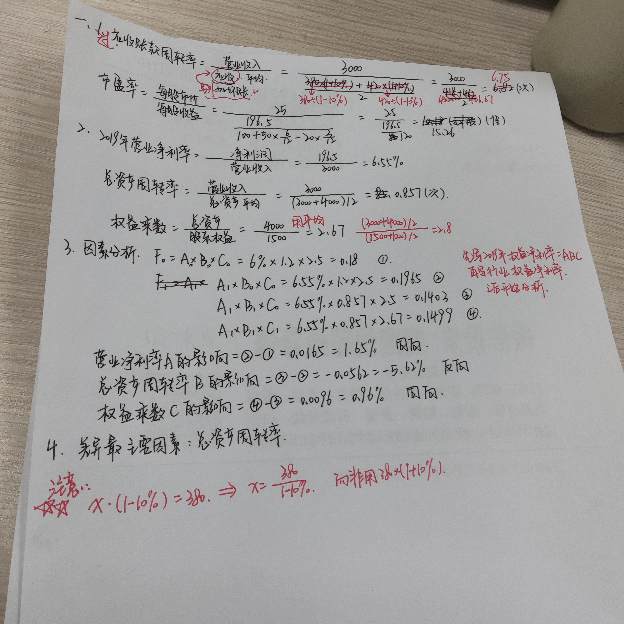 一、1. 应收账款周转率 = 营业收入/应收平均 = 3000/ = 3000/ = 6.75 (次)
加坏账
380÷(1-10%) 420÷(1-1%)
市盈率 = 每股市价/每股收益 = 25/(196.5/(100+50×6/12-20×3/12)) = 25/(196.5/120) = 15.26 (倍)
2. 2019年营业净利率 = 净利润/营业收入 = 196.5/3000 = 6.55%
总资产周转率 = 营业收入/总资产平均 = 3000/((3000+4000)/2) = 0.857 (次)
权益乘数 = 总资产/股东权益 = 4000/1500 = 2.67 用平均 = 2.8
3. 因素分析. F₀ = A₀×B₀×C₀ = 6%×1.2×2.5 = 0.18 ①.
A₁×B₀×C₀ = 6.55%×1.2×2.5 = 0.1965 ②
A₁×B₁×C₀ = 6.55%×0.857×2.5 = 0.1403 ③
A₁×B₁×C₁ = 6.55%×0.857×2.67 = 0.1499 ④.
营业净利率A的影响 = ②-① = 0.0165 = 1.65% 同向.
总资产周转率B的影响 = ③-② = -0.0562 = -5.62% 反向
权益乘数C的影响 = ④-③ = 0.0096 = 0.96% 同向.
4. 差异最主要因素：总资产周转率.
注意：
x·(1-10%) = 380. ⇒ x = 380/(1-10%). 而非用380×(1+10%).